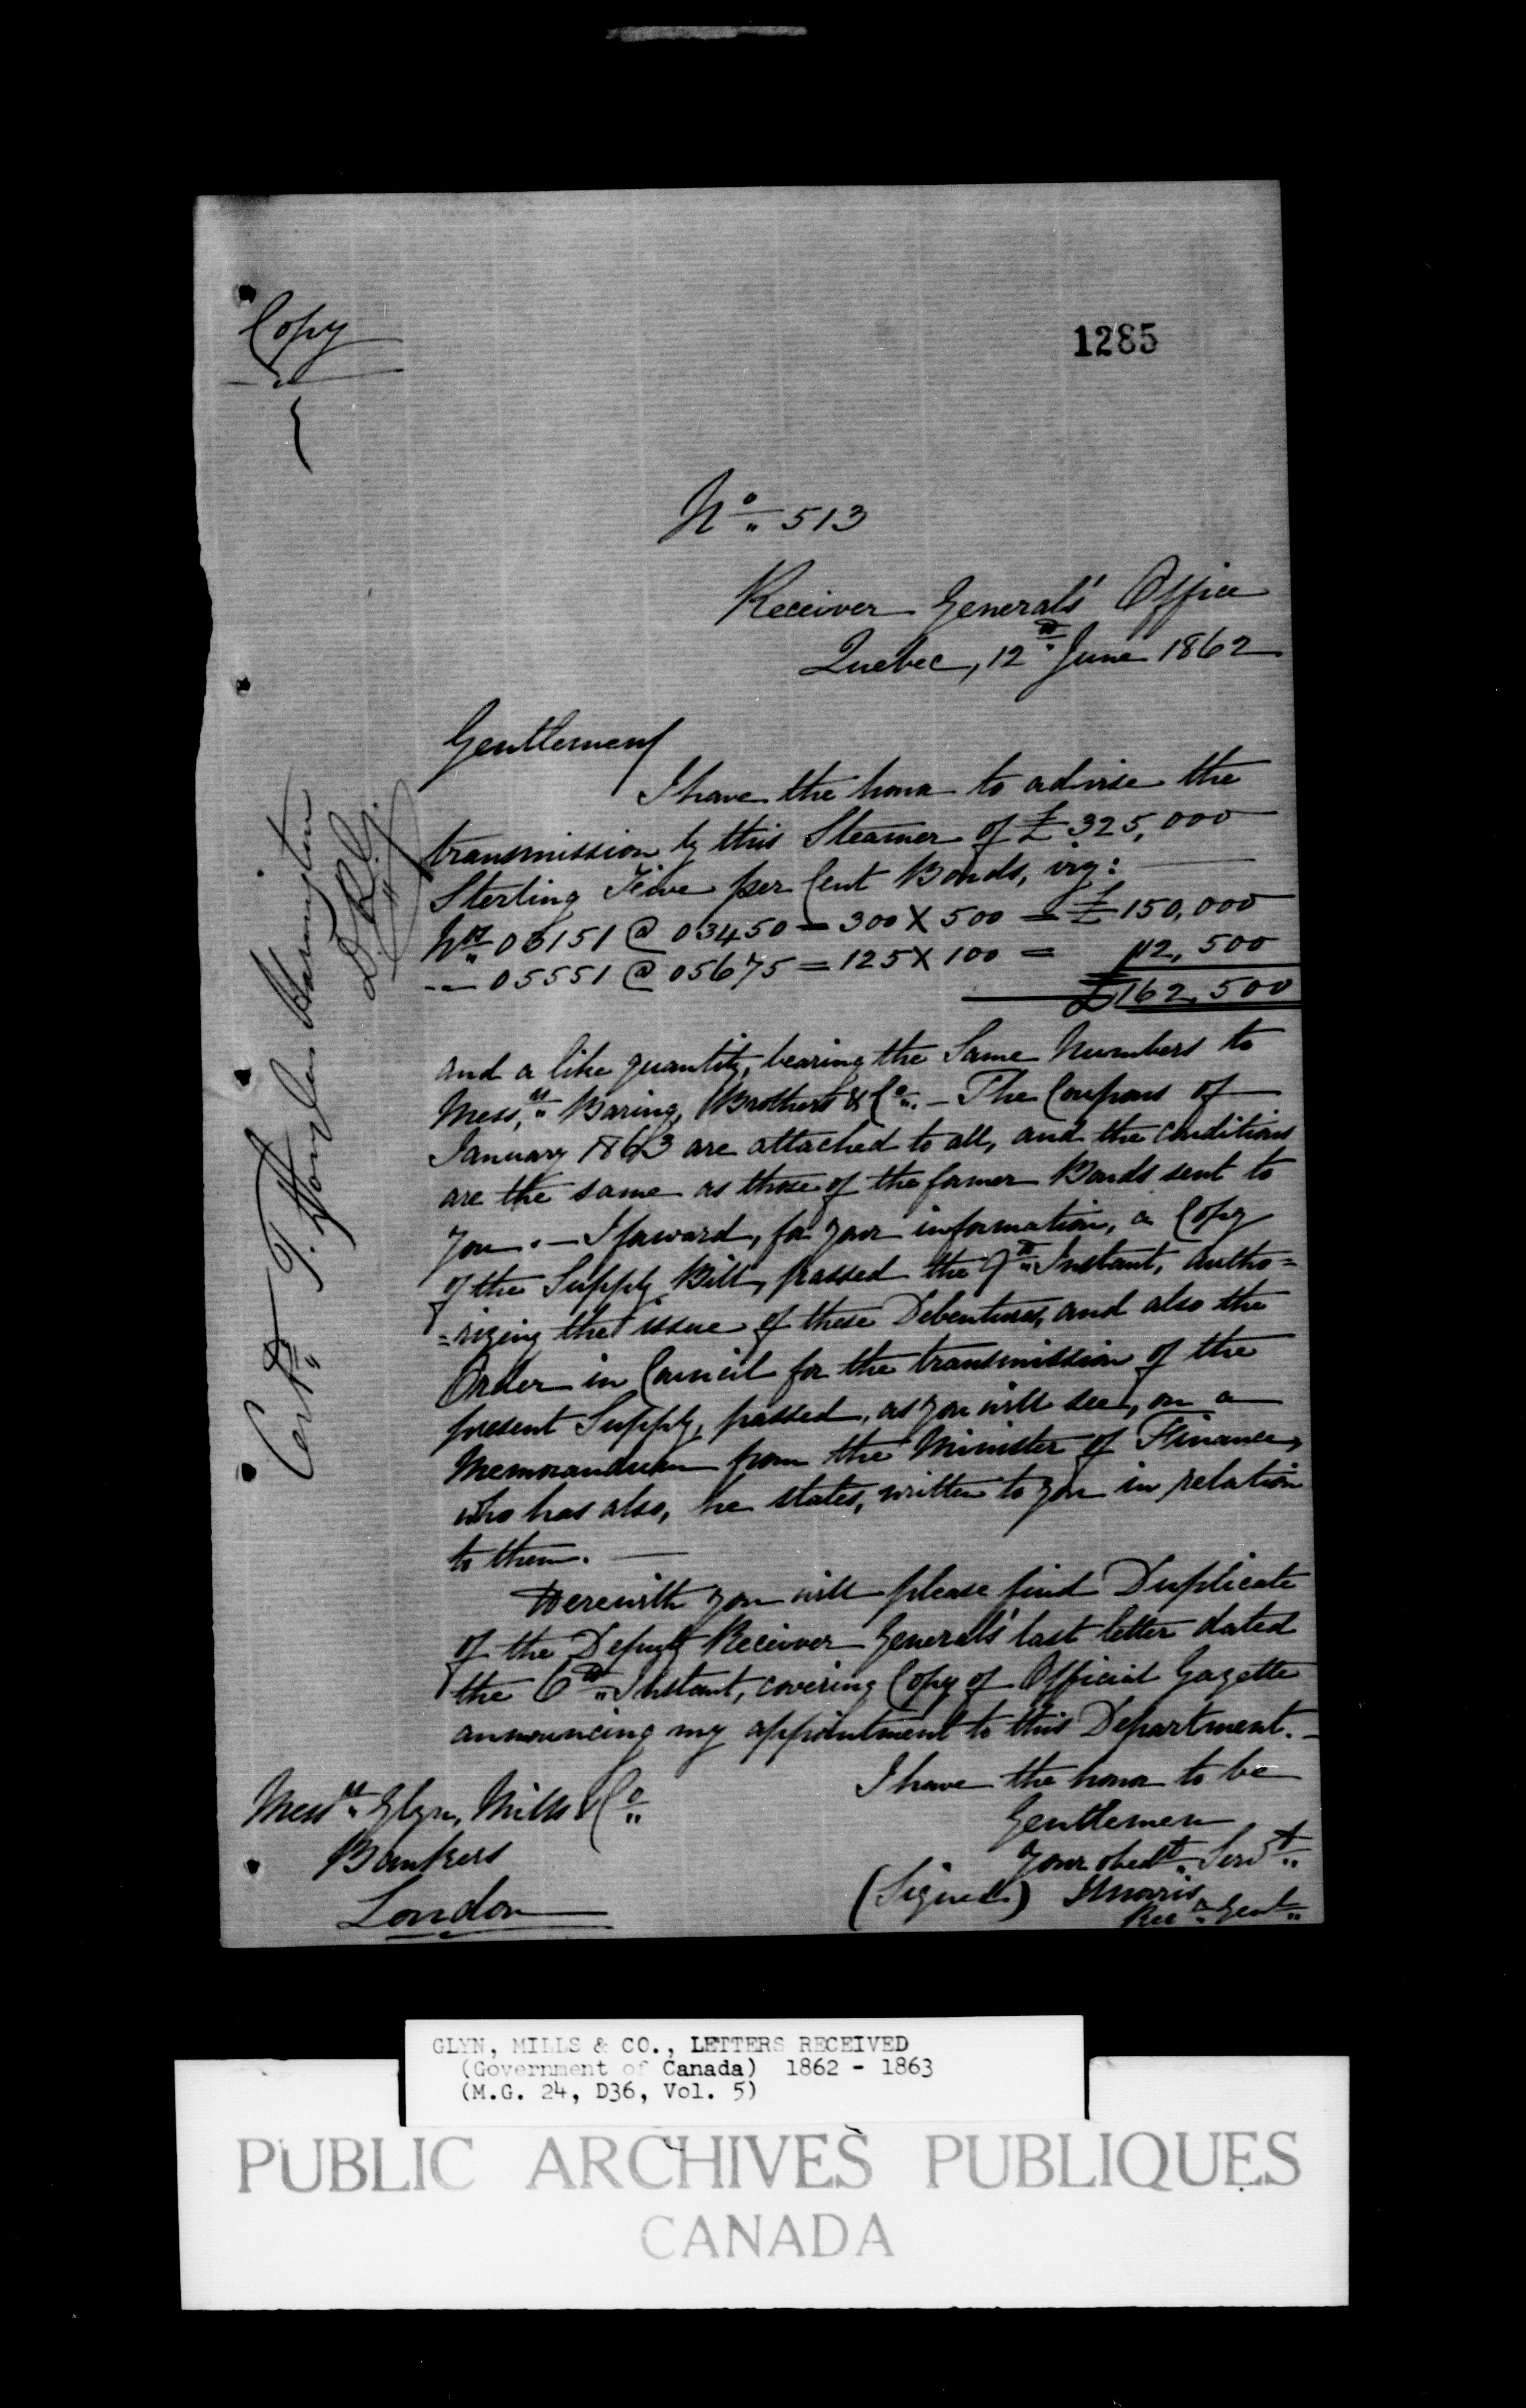 Copy
1285
No 513
Receiver Generals' Office
Quebec, 12th June 1862
Gentlemen
I have the honor to advise the
transmission by this Steamer of £325,000
Sterling Five per Cent Bonds, viz:
Nos 03151 @ 03450 = 300 X 500 = £150,000
" 05551 @ 05675 = 125 X 100 = 12,500
£162,500
and a like quantity, bearing the Same Numbers to
Messrs Baring, Brothers & Co. - The Coupons of
January 1863 are attached to all, and the conditions
are the same as those of the former Bonds sent to
you. - I forward, for your information, a Copy
of the Supply Bill, passed the 9th Instant, autho=
=rizing the issue of these Debentures, and also the
Order in Council for the transmission of the
present Supply, passed, as you will see, on a
Memorandum from the Minister of Finance,
who has also, he states, written to you in relation
to them.
Herewith you will please find Duplicate
of the Deputy Receiver Generals' last letter dated
the 6th Instant, covering Copy of Official Gazette
announcing my appointment to this Department. -
I have the honor to be
Gentlemen
Your obedt Servt
(Signed) J Morris
Recr Genl
Messrs Glyn, Mills & Co
Bankers
London
Certd T. Douglas Harrington
D.R.G.
GLYN, MILLS & CO., LETTERS RECEIVED
(Government of Canada) 1862 - 1863
(M.G. 24, D36, Vol. 5)
PUBLIC ARCHIVES PUBLIQUES
CANADA